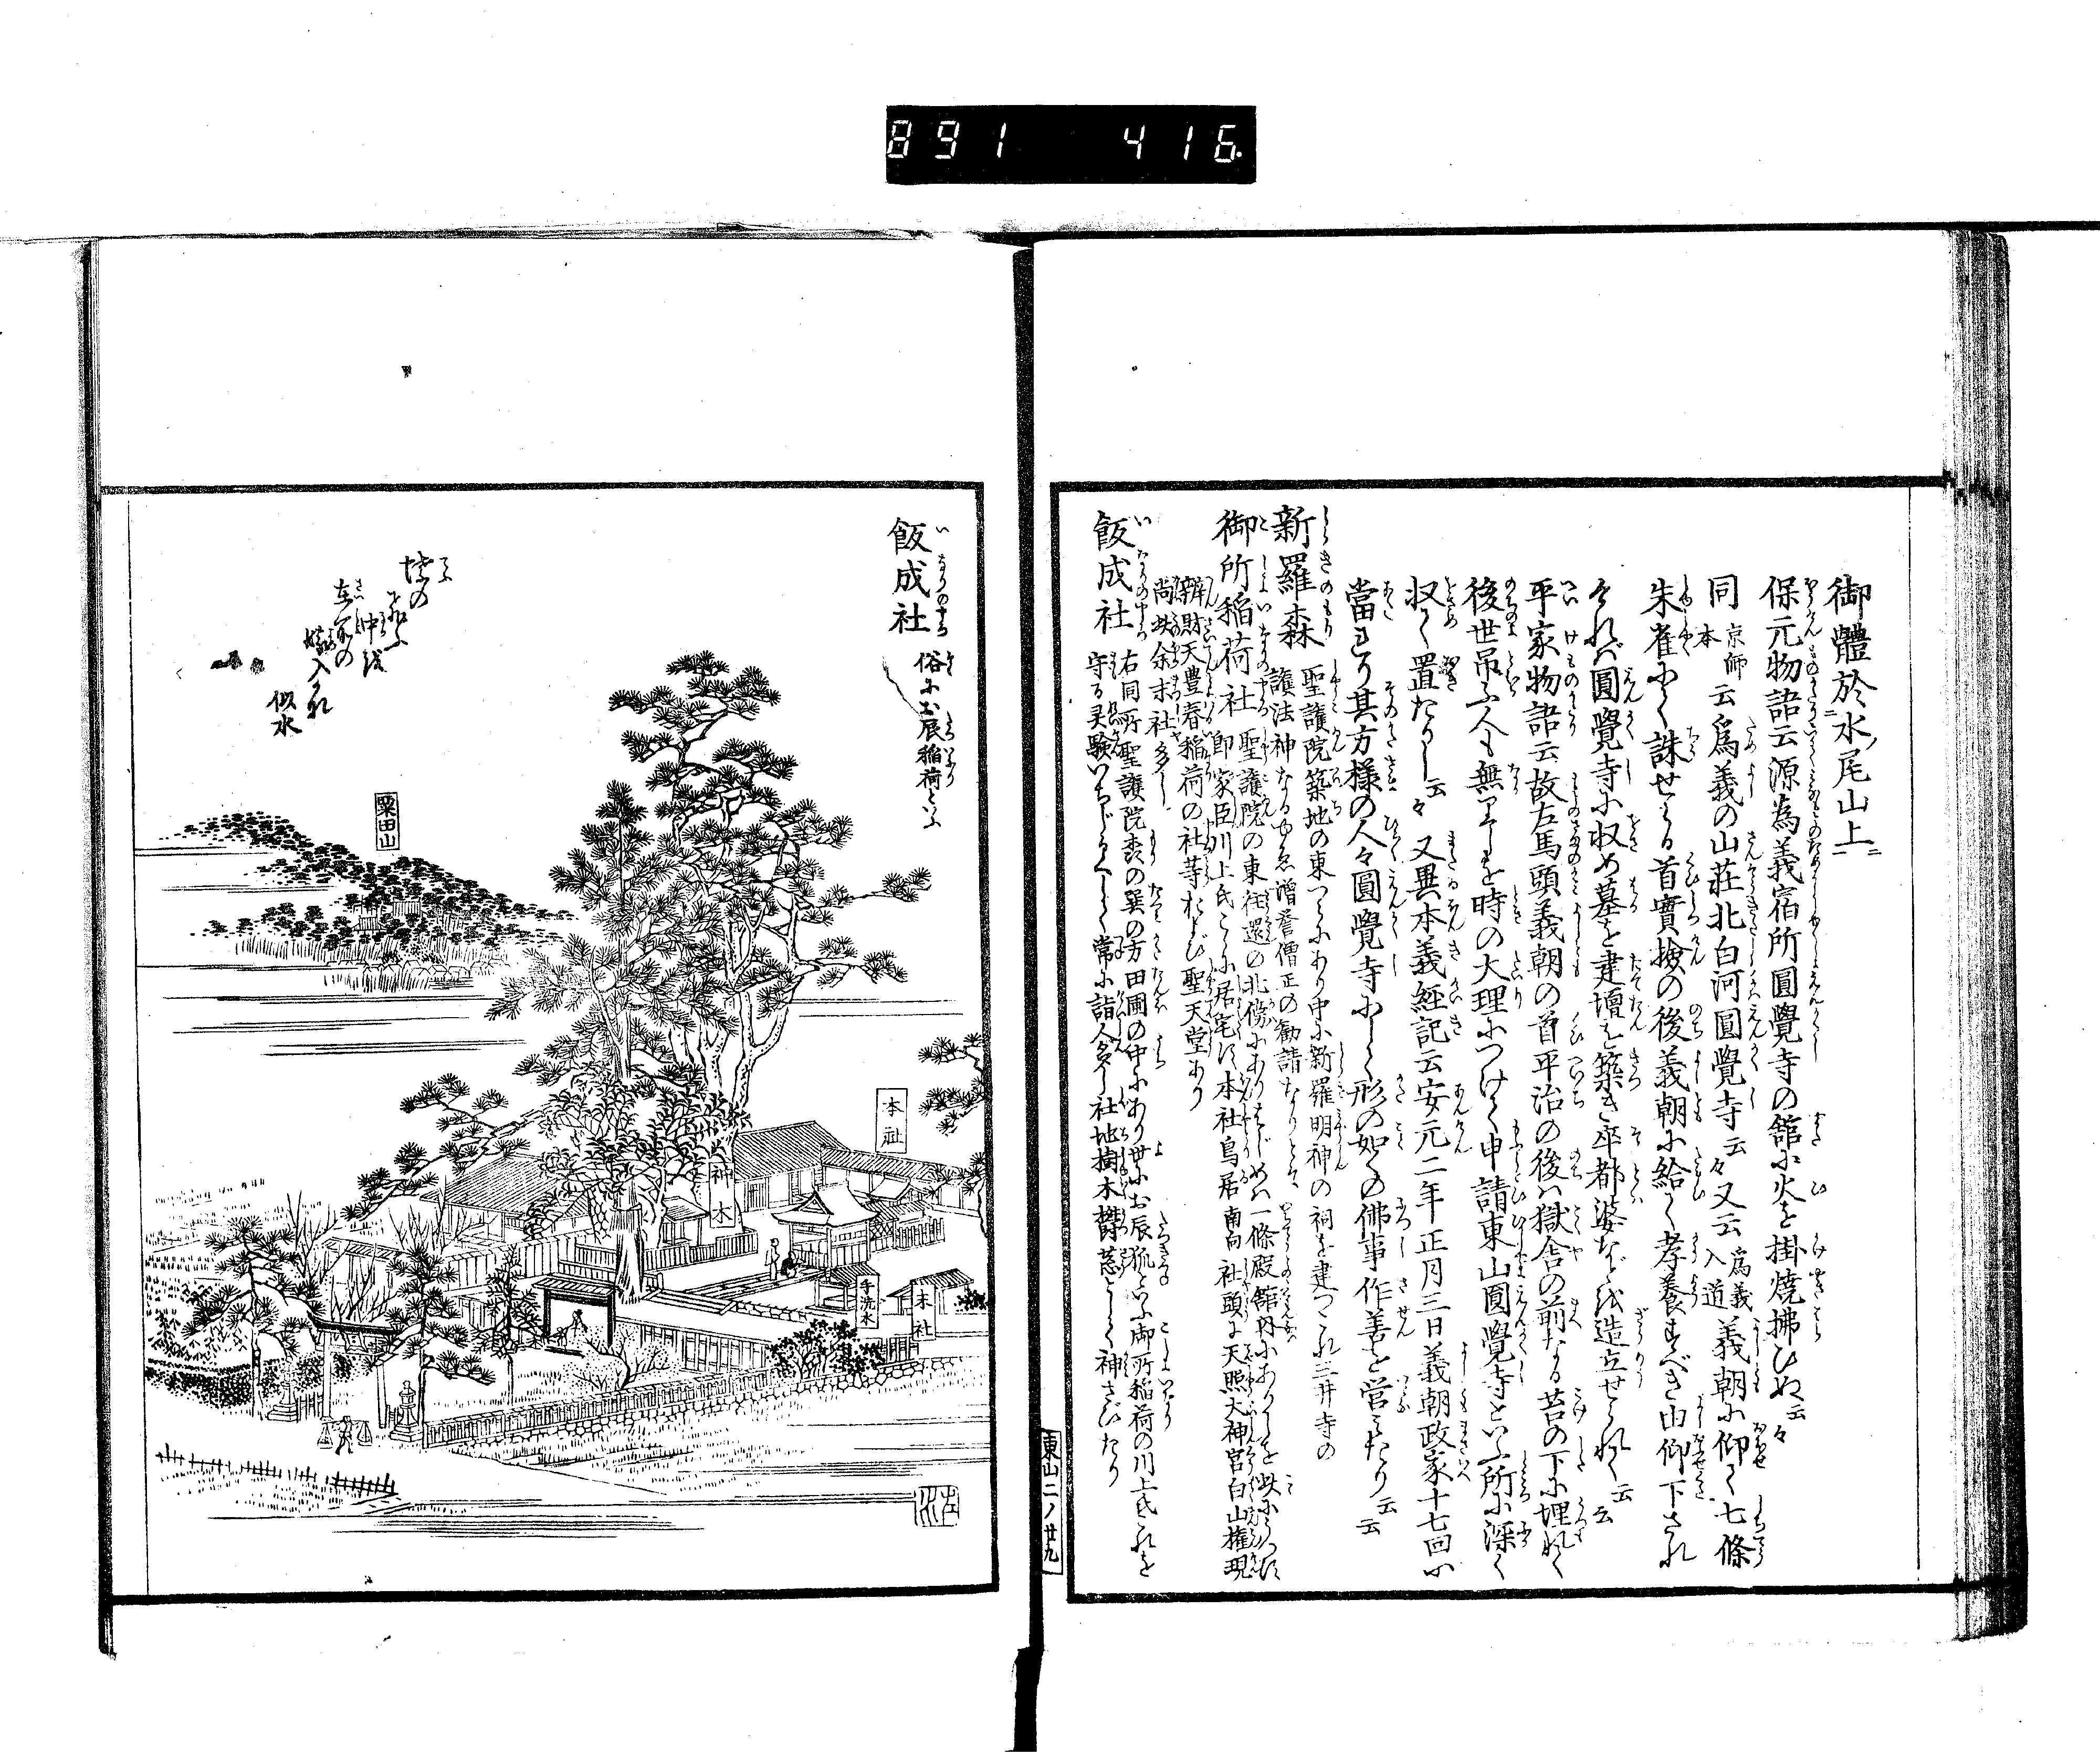 891 416
御體於水ノ尾山上
保元物語云源為義宿所圓覺寺の舘に火を掛焼拂ひぬ云々
同京師本云為義の山荘北白河圓覺寺云々又云為義入道義朝に仰て七條
朱雀にて誅せらる首實撿の後義朝に給て孝養すべき由仰下され
ければ圓覺寺に収め墓を建壇を築き卒都婆など造立せられて云云
平家物語云故左馬頭義朝の首平治の後ハ獄舎の前なる苔の下に埋れて
後世吊ふ人も無りしを時の大理につけて申請東山圓覺寺といふ所に深く
収て置たりし云々又異本義経記云安元二年正月三日義朝政家十七回に
當れり其方様の人々圓覺寺にして形の如くの佛事作善を営みたり云云
新羅森 聖護院築地の東つらにあり中に新羅明神の祠を建つこれ三井寺の
護法神なるゆゑ増誉僧正の勧請なりとぞ
御所稲荷社 聖護院の東往還の北傍にありはじめハ一條殿舘内にありしを此にうつす
即家臣川上氏こゝに居宅す本社鳥居南向社頭に天照大神宮白山権現
辨財天豊春稲荷の社等および聖天堂あり
尚此余末社多し
飯成社 右同所聖護院森の巽の方田圃の中にあり世にお辰狐といふ御所稲荷の川上氏これを
守る灵験いちじるくして常に詣人多し社地樹木欝葱として神さびたり
東山二ノ廿九
飯成社
俗にお辰稲荷といふ
粟田山
本社
神木
手洗水
末社
似水